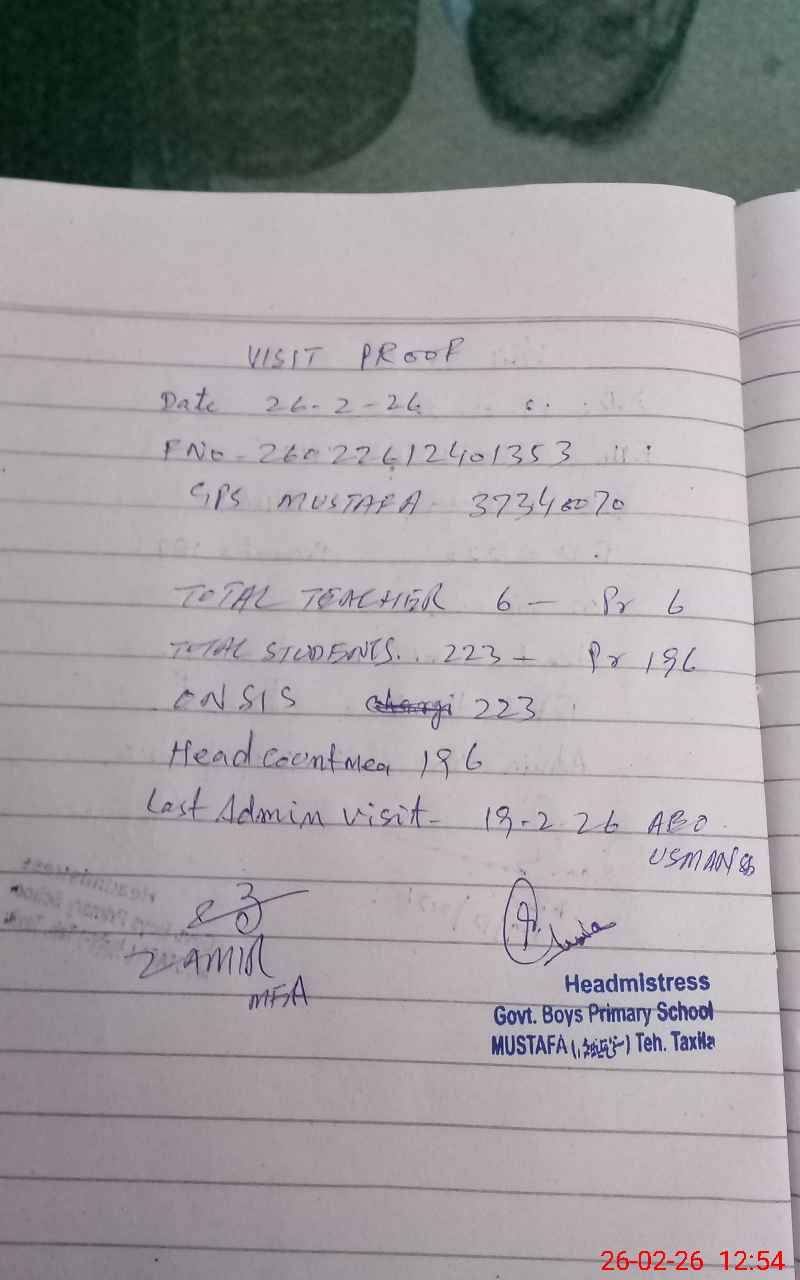 VISIT PROOF
Date 26-2-26
FNo-26022612401353
GPS MUSTAFA- 37340070
TOTAL TEACHER 6 - Pr 6
TOTAL STUDENTS.. 223 - Pr 196
ON SIS 223
Head count mea 196
Last Admin visit- 19-2 26 AEO
USMAN
ZAMIR
MEA
Headmistress
Govt. Boys Primary School
MUSTAFA Teh. Taxila
26-02-26 12:54